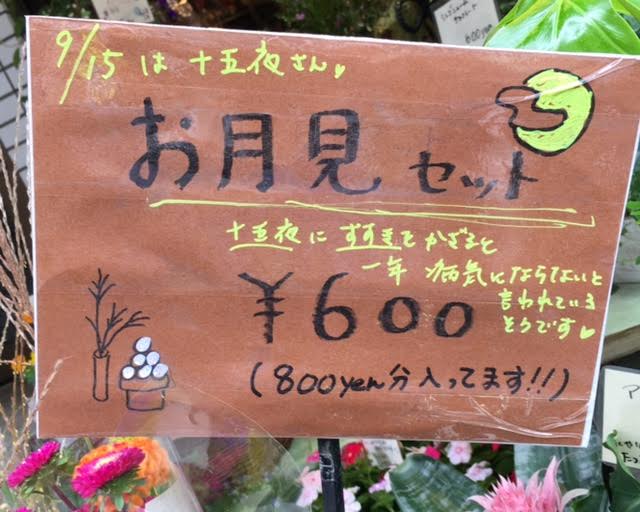 9/15 は 十五夜さん♥
お月見 セット
十五夜に すすきをかざると
一年 病気にならないと
言われている
そうです♥
¥600
(800yen分入ってます!!)
600yen